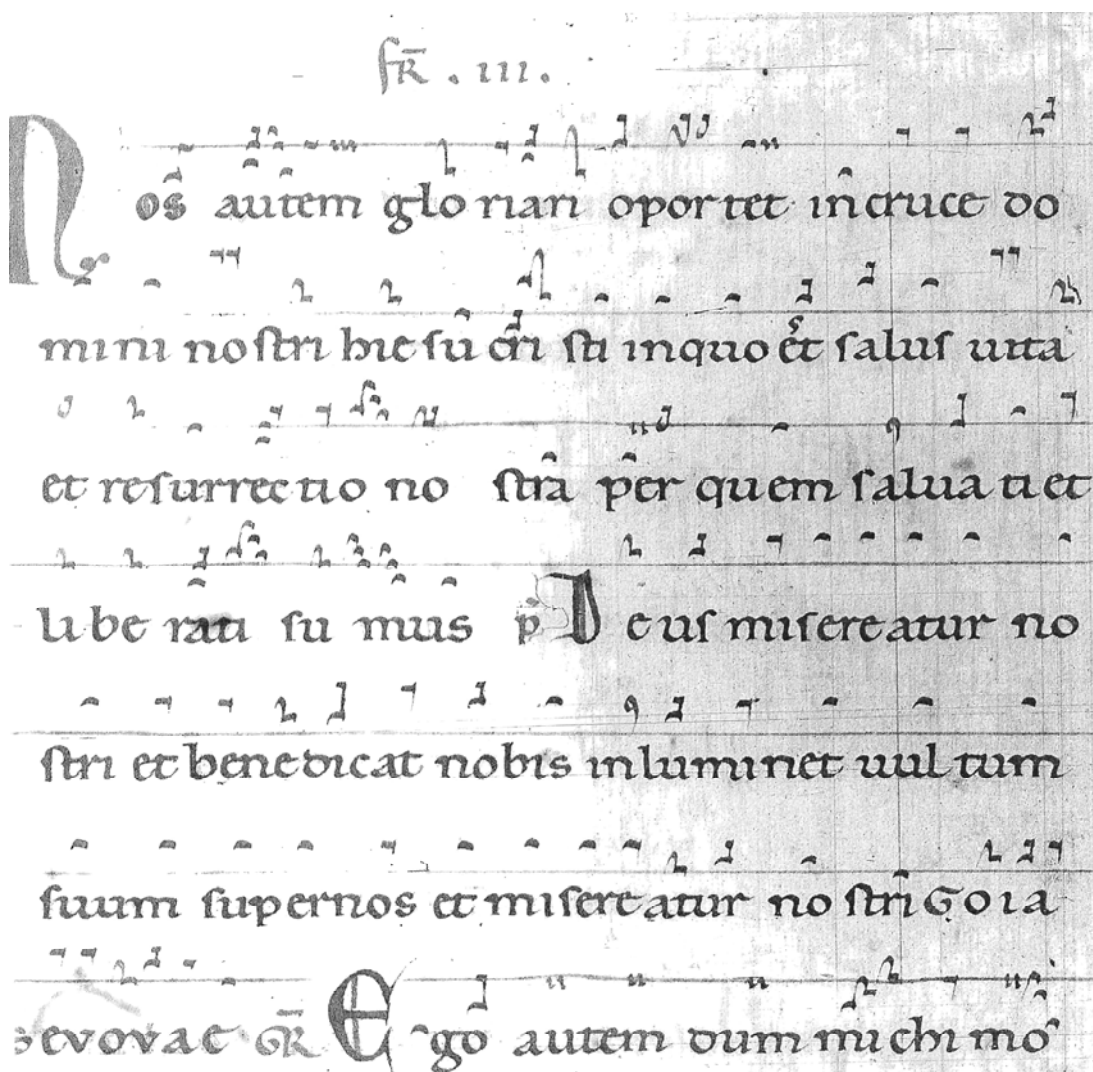 fR̄ . III .
Nos autem glo riari oportet in cruce do
mini nostri hie su cri sti inquo est salus uita
et resurrectio no stra per quem salua ti et
li be rati su mus p̄ Deus misereatur no
stri et benedicat nobis inluminet uul tum
suum supernos et misereatur no stri Goia
evovae GR̄ Ego autem dum michi mo